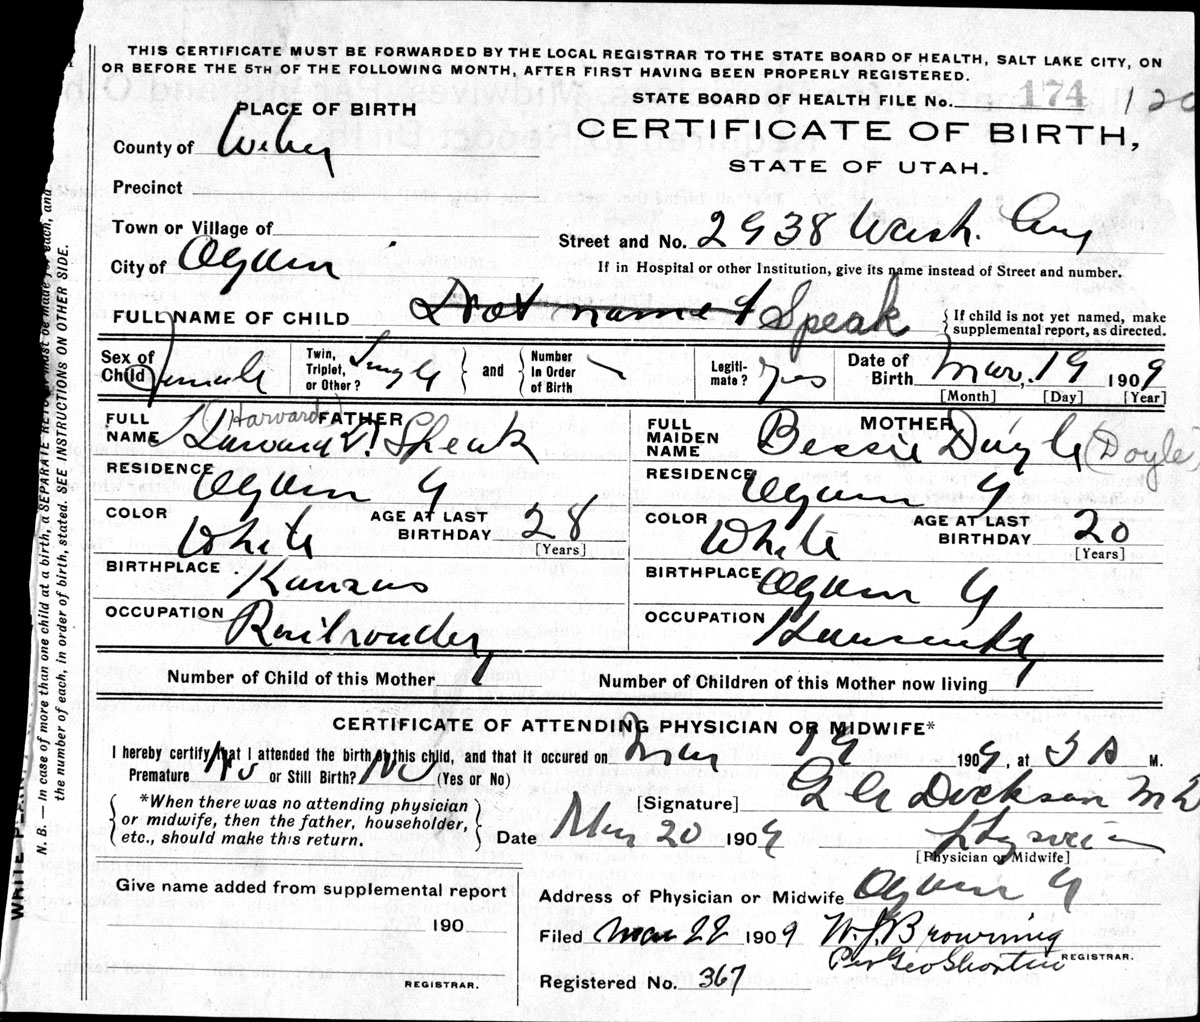 THIS CERTIFICATE MUST BE FORWARDED BY THE LOCAL REGISTRAR TO THE STATE BOARD OF HEALTH, SALT LAKE CITY, ON
OR BEFORE THE 5TH OF THE FOLLOWING MONTH, AFTER FIRST HAVING BEEN PROPERLY REGISTERED.
STATE BOARD OF HEALTH FILE No. 174 120
PLACE OF BIRTH
CERTIFICATE OF BIRTH,
STATE OF UTAH.
County of Weber
Precinct
Town or Village of
Street and No. 2938 Wash. Avy
City of Ogden
If in Hospital or other Institution, give its name instead of Street and number.
FULL NAME OF CHILD Not named Speak
If child is not yet named, make
supplemental report, as directed.
Sex of Child Female
Twin, Triplet, or Other? Single
and
Number in Order of Birth
Legitimate? Yes
Date of Birth Mar. 19 1909
[Month] [Day] [Year]
FATHER
FULL NAME Harvard V. Speak (Harvard)
RESIDENCE Ogden U
COLOR White
AGE AT LAST BIRTHDAY 28
[Years]
BIRTHPLACE Kansas
OCCUPATION Railroader
MOTHER
FULL MAIDEN NAME Bessie Doyle (Doyle)
RESIDENCE Ogden U
COLOR White
AGE AT LAST BIRTHDAY 20
[Years]
BIRTHPLACE Ogden U
OCCUPATION Housewife
Number of Child of this Mother 1
Number of Children of this Mother now living 1
CERTIFICATE OF ATTENDING PHYSICIAN OR MIDWIFE*
I hereby certify that I attended the birth of this child, and that it occured on Mar 19 1909, at 5 A M.
Premature No or Still Birth? No (Yes or No)
[Signature] Dickson M D
*When there was no attending physician
or midwife, then the father, householder,
etc., should make this return.
Date Mar 20 1909
Physician
[Physician or Midwife]
Give name added from supplemental report
190
REGISTRAR.
Address of Physician or Midwife Ogden U
Filed Mar 22 1909 W. J. Browning
REGISTRAR.
Per Geo Shorten
Registered No. 367
N. B. — In case of more than one child at a birth, a SEPARATE RETURN must be made for each, and
the number of each, in order of birth, stated. SEE INSTRUCTIONS ON OTHER SIDE.